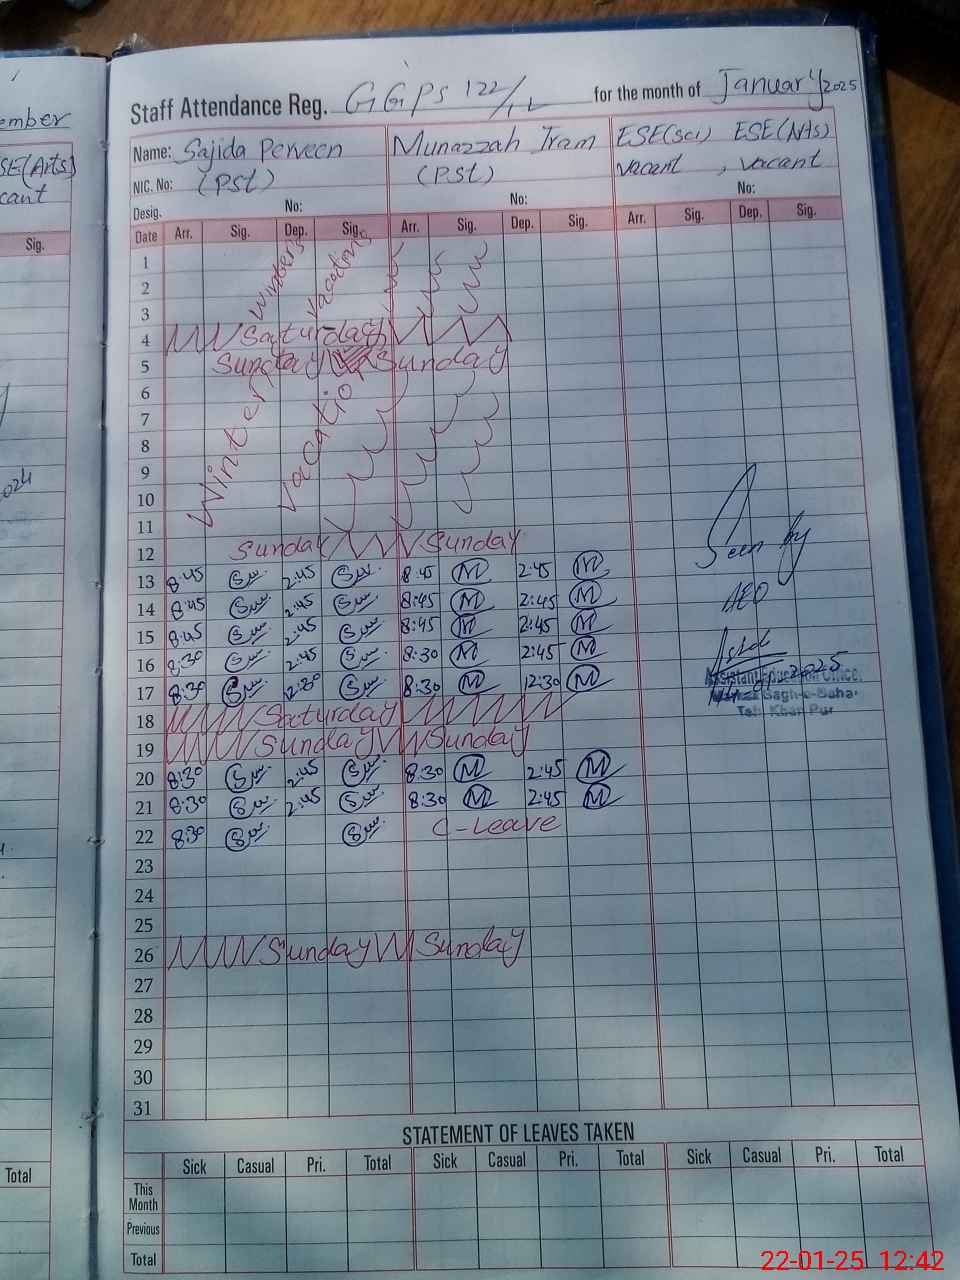 ember
SE(Arts)
cant
Sig.
Total
Staff Attendance Reg. GGPS 122/1L for the month of January 2025
Name: Sajida Perveen Munazzah Iram ESE(Sci) ESE(Arts)
NIC. No: (PST) (PST) vacant , vacant
Desig. No: No: No:
Date Arr. Sig. Dep. Sig. Arr. Sig. Dep. Sig. Arr. Sig. Dep. Sig.
1
2
3
Winters Vacations
4 Saturday
5 Sunday Sunday
6
7
8
9
10
11
Winter Vacatio
12 Sunday Sunday
13 8:45 2:45 8:45 M 2:45 M
14 8:45 2:45 8:45 M 2:45 M
15 8:45 2:45 8:45 M 2:45 M
16 8:30 2:45 8:30 M 2:45 M
17 8:30 12:30 8:30 M 12:30 M
18 Saturday
19 Sunday Sunday
20 8:30 2:45 8:30 M 2:45 M
21 8:30 2:45 8:30 M 2:45 M
22 8:30 C-Leave
23
24
25
26 Sunday Sunday
27
28
29
30
31
Seen by
AEO
Assistant Education Officer
Bagh-o-Bahar
Teh: Khan Pur
STATEMENT OF LEAVES TAKEN
Sick Casual Pri. Total Sick Casual Pri. Total Sick Casual Pri. Total
This Month
Previous
Total
22-01-25 12:42